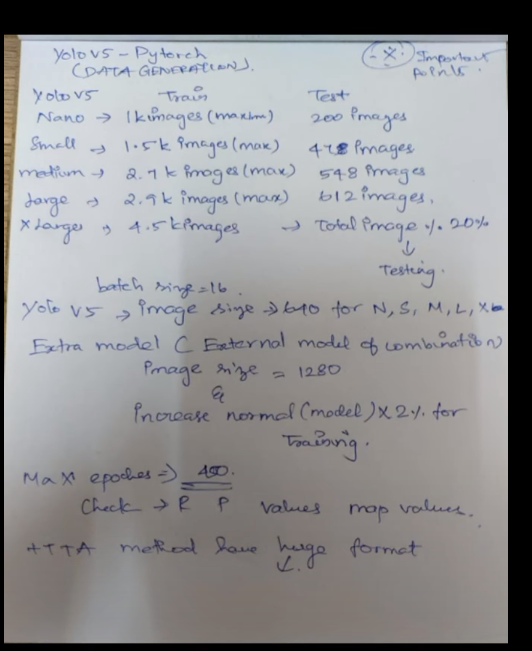 Yolo V5 - Pytorch
(DATA GENERATION).
Important Points.
Yolo V5 Train Test
Nano → 1k images (maxim) 200 images
Small → 1.5k images (max) 478 images
medium → 2.7k images (max) 548 images
Large → 2.9k images (max) 612 images.
X Larges → 4.5k images → Total image % 20%
↓
Testing.
batch size = 16.
Yolo V5 → image size → 640 for N, S, M, L, X
Extra model ( External model of combination)
image size = 1280
&
increase normal (model) X 2% for
Training.
Max epoches ⇒ 400.
Check → R P values map values.
+TTA method have huge format
↓.